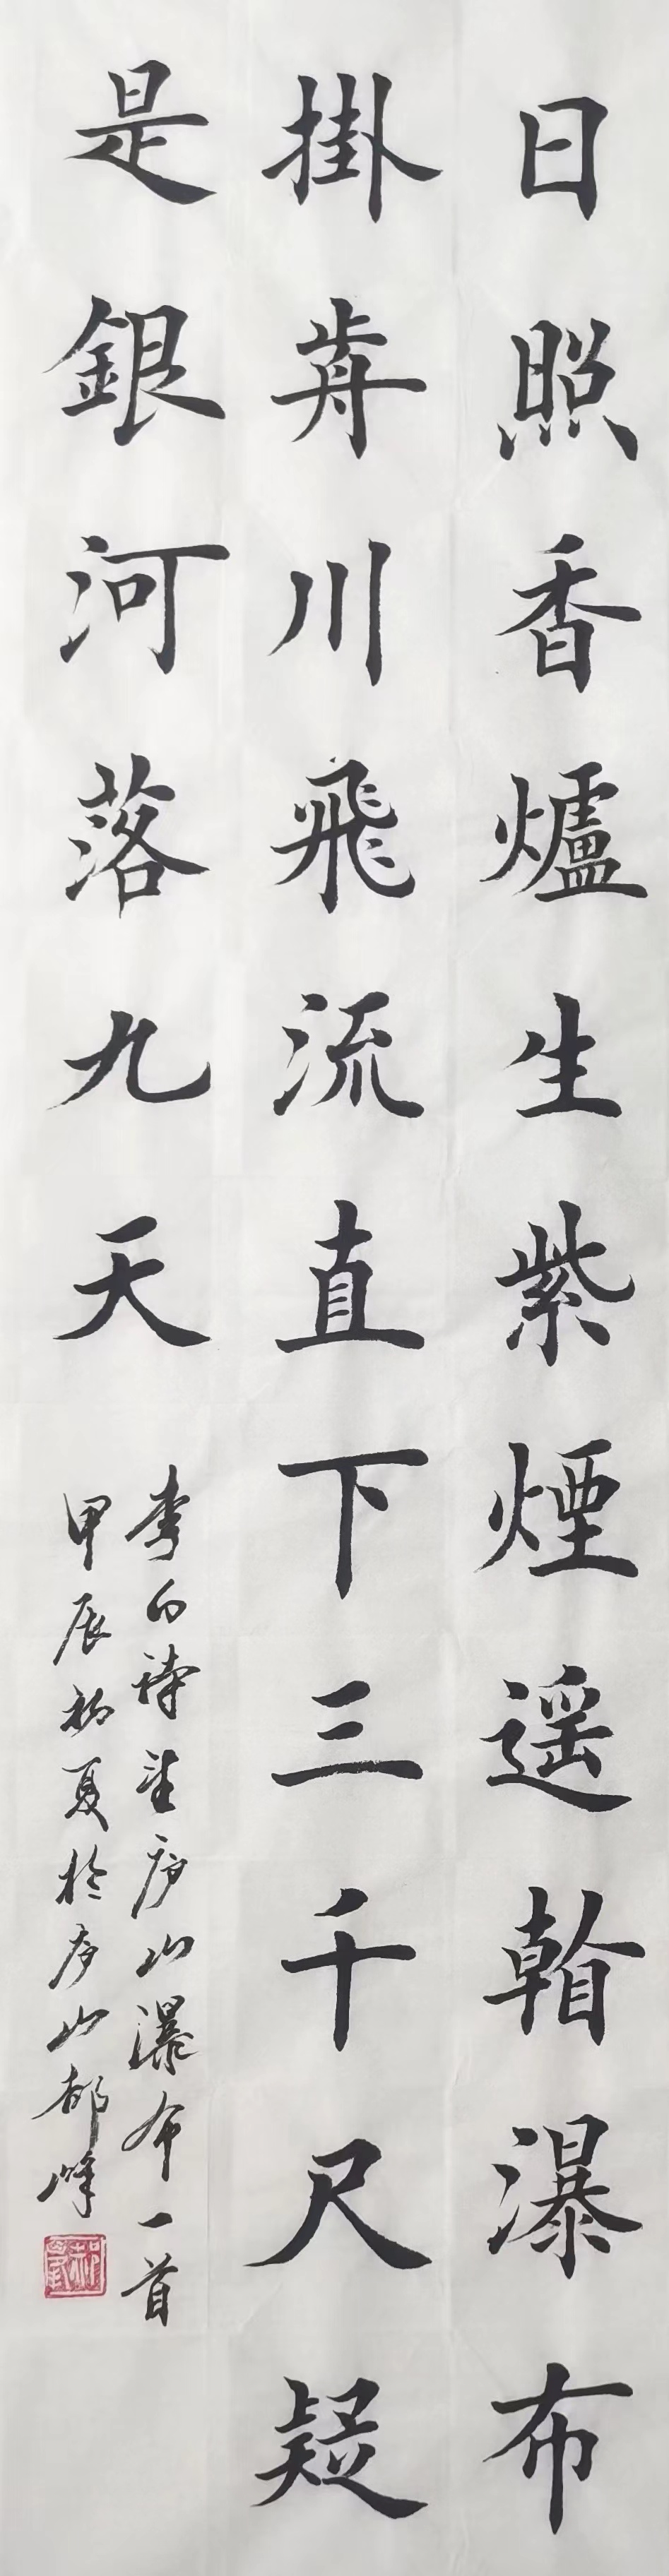 日照香爐生紫煙遥看瀑布
掛歬川飛流直下三千尺疑
是銀河落九天
李白詩望庐山瀑布一首
甲辰初夏於庐山郝峰